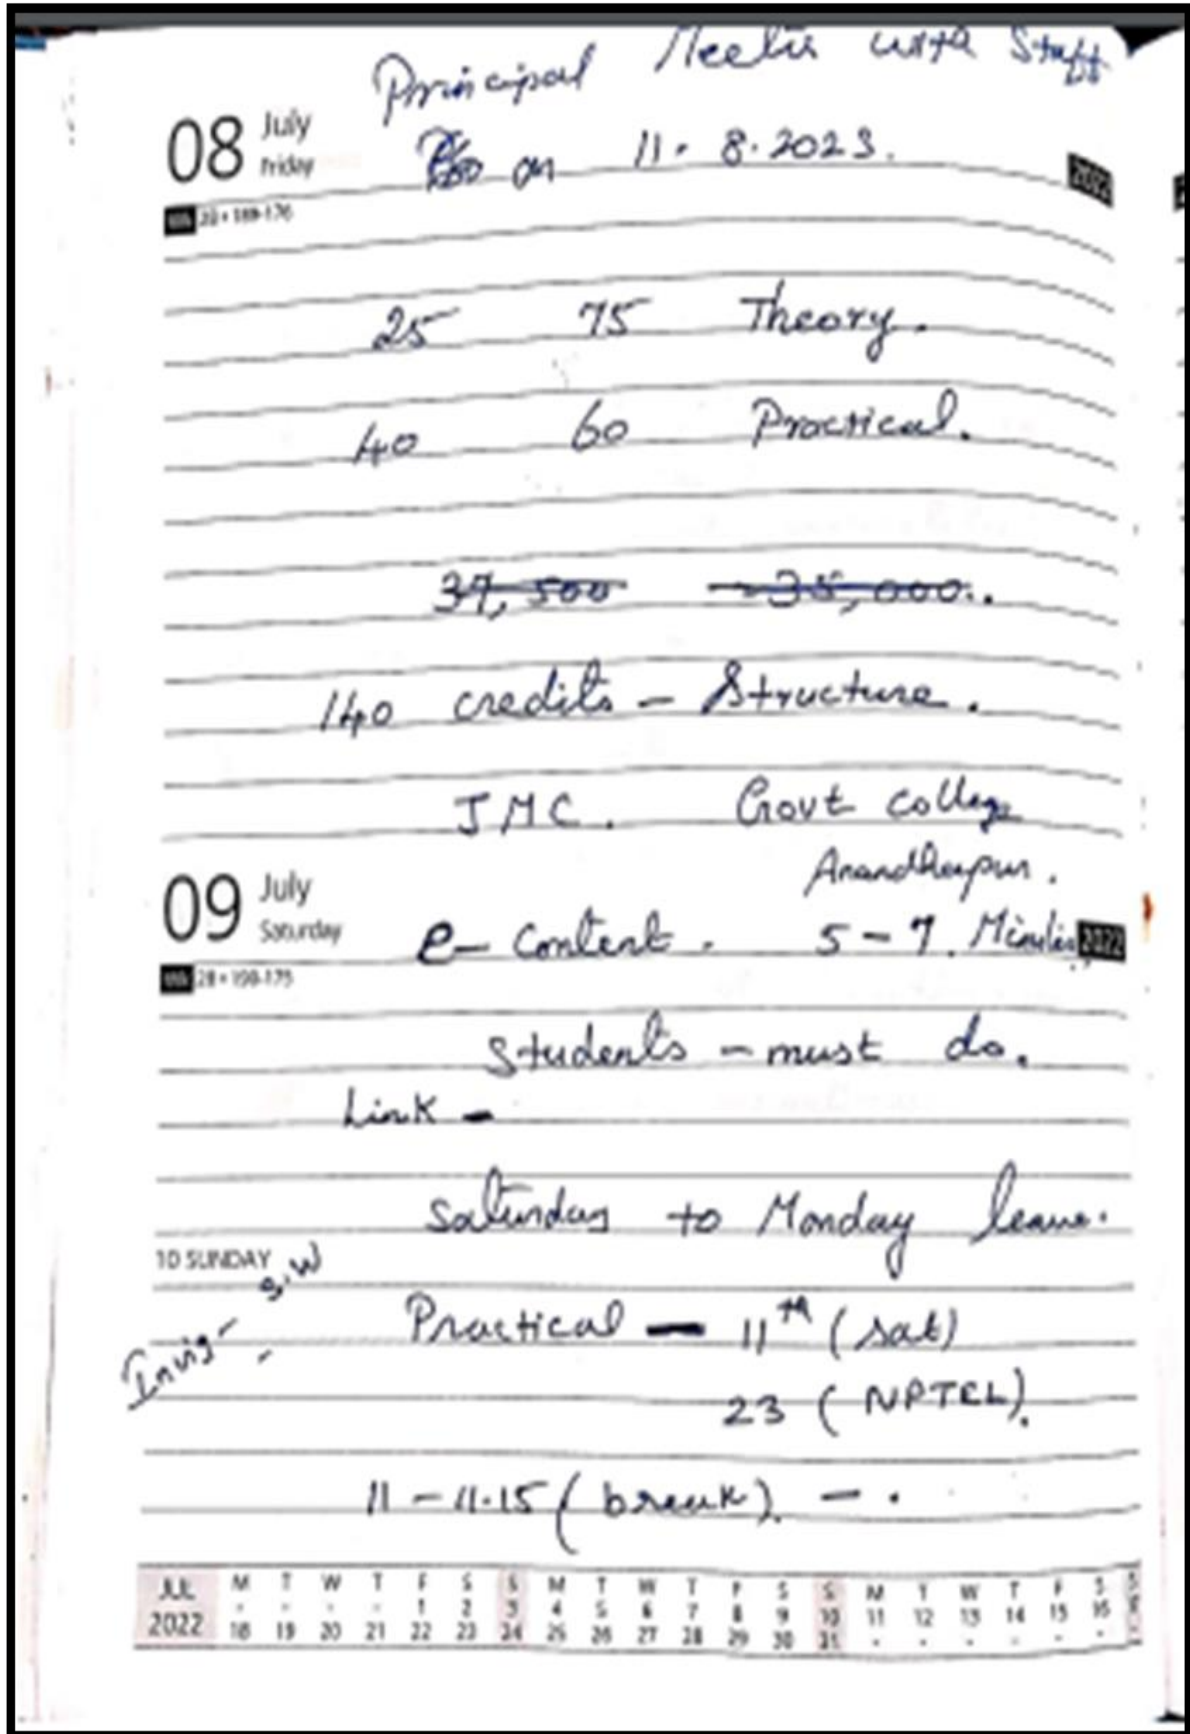 Principal Meetin with Staff
08 July
Friday
on 11. 8. 2023.
2022
25 75 Theory.
40 60 Practical.
37,500 - 35,000..
140 credits - Structure.
JMC. Govt college
Anandhapur.
09 July
Saturday
e- Content. 5-7. Minutes
2022
Students - must do.
Link -
Saturday to Monday leave.
10 SUNDAY
S.W
Invig -
Practical - 11th (sat)
23 (NPTEL).
11 - 11.15 (break). - .
JUL M T W T F S S M T W T F S S M T W T F S S
2022 - - - - 1 2 3 4 5 6 7 8 9 10 11 12 13 14 15 16
18 19 20 21 22 23 24 25 26 27 28 29 30 31 - - - - - -